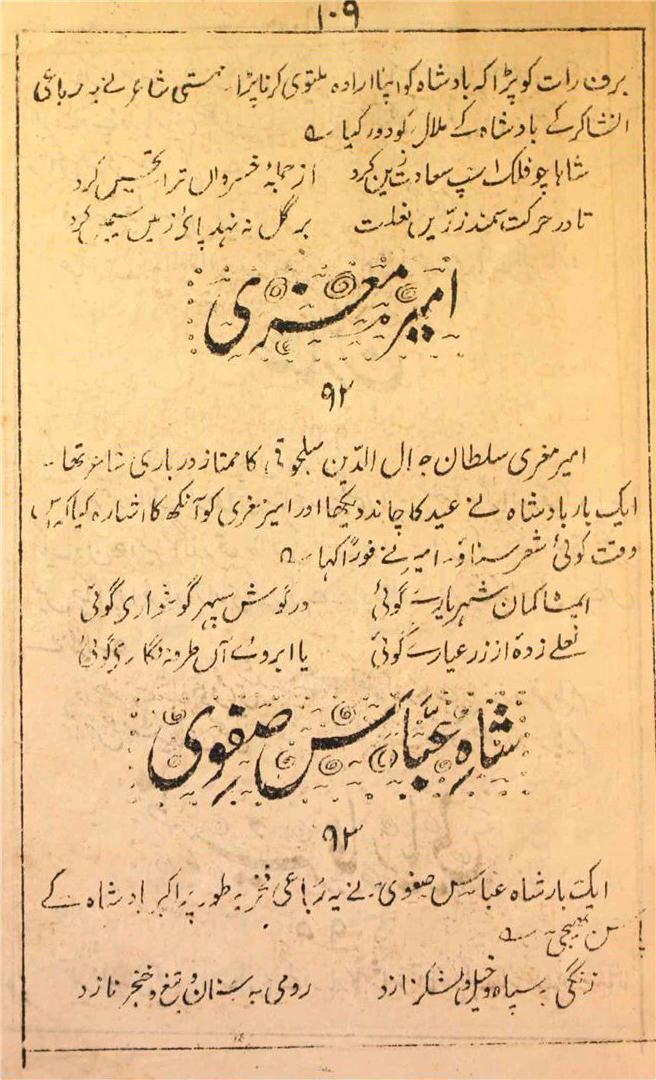 ۱۰۹
برف رات کو پڑا کہ بادشاہ کو اپنا ارادہ ملتوی کرنا پڑا۔ مہستی شاعر نے یہ رباعی
انشا کر کے بادشاہ کے ملال کو دور کیا ؎
شاہا چو فلک اسپ سعادت زین کرد از جملۂ خسرواں ترا تحسیں کرد
تا در حرکت سمند زرّیں نعلت بر گل نہ نہد پائے زمیں سیمیں کرد
امیر معزی
۹۲
امیر مغری سلطان جلال الدّین سلجوقی کا ممتاز درباری شاعر تھا۔
ایک بار بادشاہ نے عید کا چاند دیکھا اور امیر مغری کو آنکھ کا اشارہ کیا کہ اس
وقت کوئی شعر سناؤ۔ امیر نے فوراً کہا ؎
کمان شہریارے گوئی در گوش سپہر گوشواری گوئی
نعلے زدہ از زر عیارے گوئی یا ابروئے آں طرفہ نگاری گوئی
شاہِ عبّاس صفوی
۹۳
ایک بار شاہ عباس صفوی نے یہ رُباعی فخریہ طور پر اکبر بادشاہ کے
پاس بھیجی۔ ؎
زنگی بہ سپاہ و خیل و لشکر نازد رومی بہ سنان و تیغ و خنجر نازد